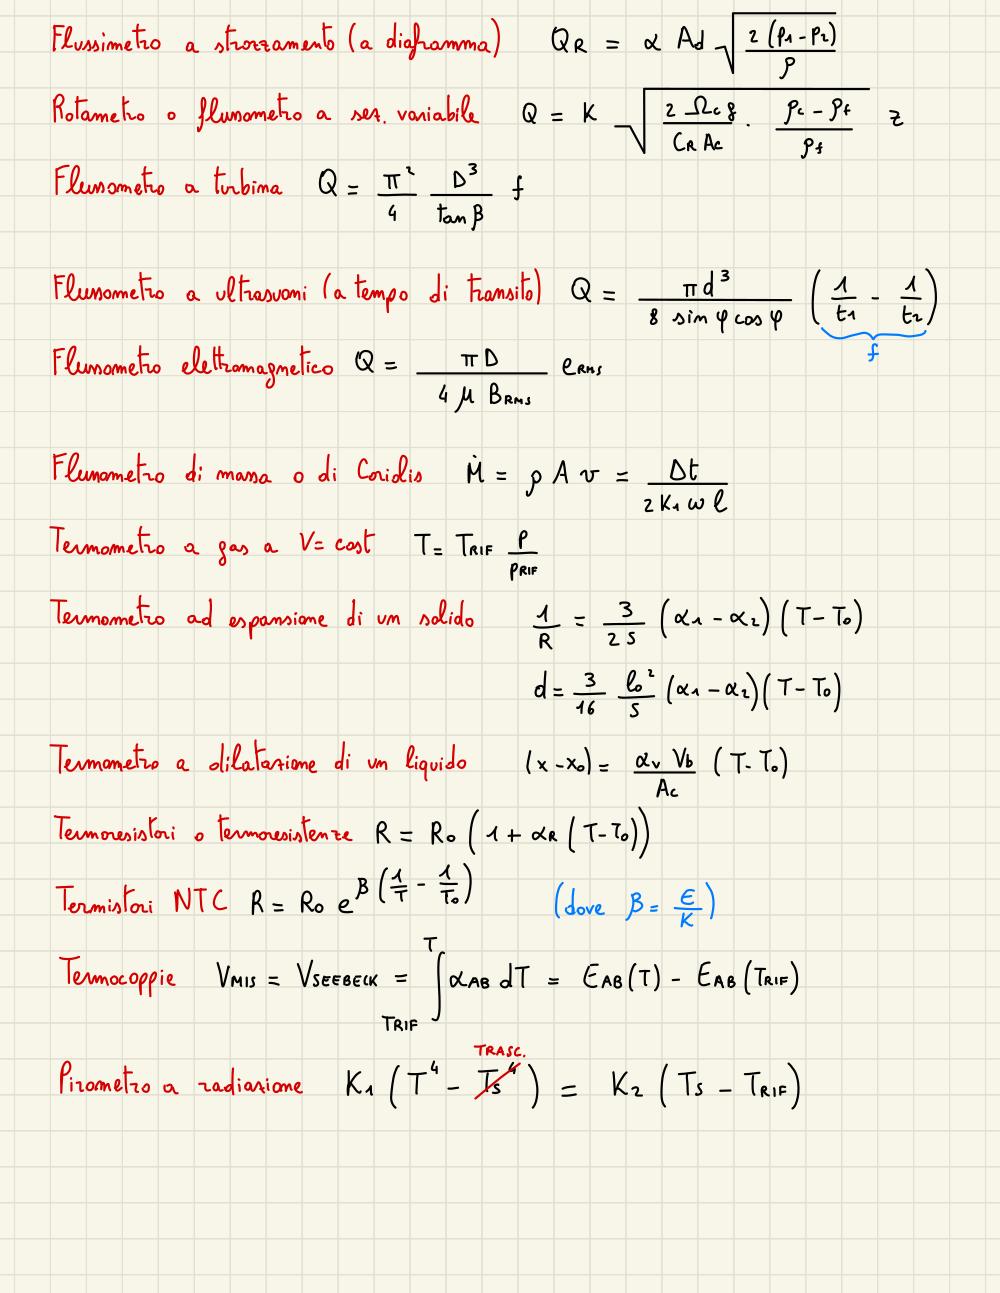 Flussimetro a strozzamento (a diaframma) Q_R = α Ad √(2 (p1 - p2) / ρ)
Rotametro o flussometro a sez. variabile Q = K √(2 Ωc g / (C_R Ac) · (ρc - ρf) / ρf) z
Flussometro a turbina Q = π² / 4 D³ / tan β f
Flussometro a ultrasuoni (a tempo di transito) Q = π d³ / (8 sin φ cos φ) (1/t1 - 1/t2)
f
Flussometro elettromagnetico Q = π D / (4 μ B_RMS) e_RMS
Flussometro di massa o di Coriolis Ṁ = ρ A v = Δt / (2 K1 ω l)
Termometro a gas a V = cost T = T_RIF p / p_RIF
Termometro ad espansione di un solido 1/R = 3 / (2 s) (α1 - α2) (T - To)
d = 3/16 lo² / s (α1 - α2) (T - To)
Termometro a dilatazione di un liquido (x - xo) = αv Vb / Ac (T - To)
Termoresistori o termoresistenze R = Ro (1 + αR (T - To))
Termistori NTC R = Ro e^β (1/T - 1/To) (dove β = E/K)
Termocoppie V_MIS = V_SEEBECK = ∫_TRIF^T α_AB dT = E_AB (T) - E_AB (T_RIF)
TRASC.
Pirometro a radiazione K1 (T⁴ - Ts⁴) = K2 (Ts - T_RIF)